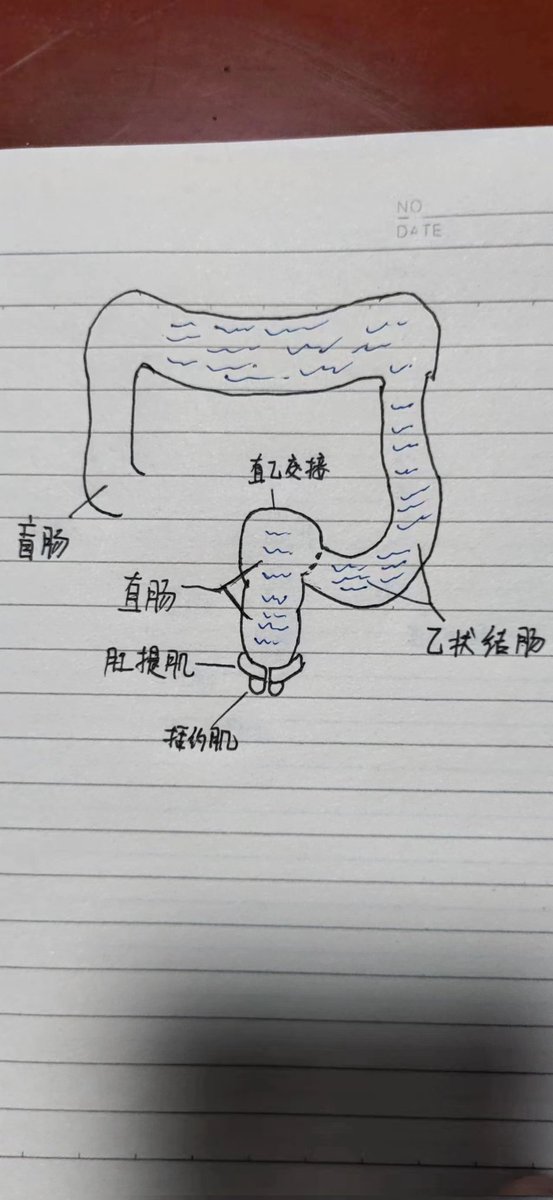 NO
DATE
直乙交接
盲肠
直肠
乙状结肠
肛提肌
括约肌